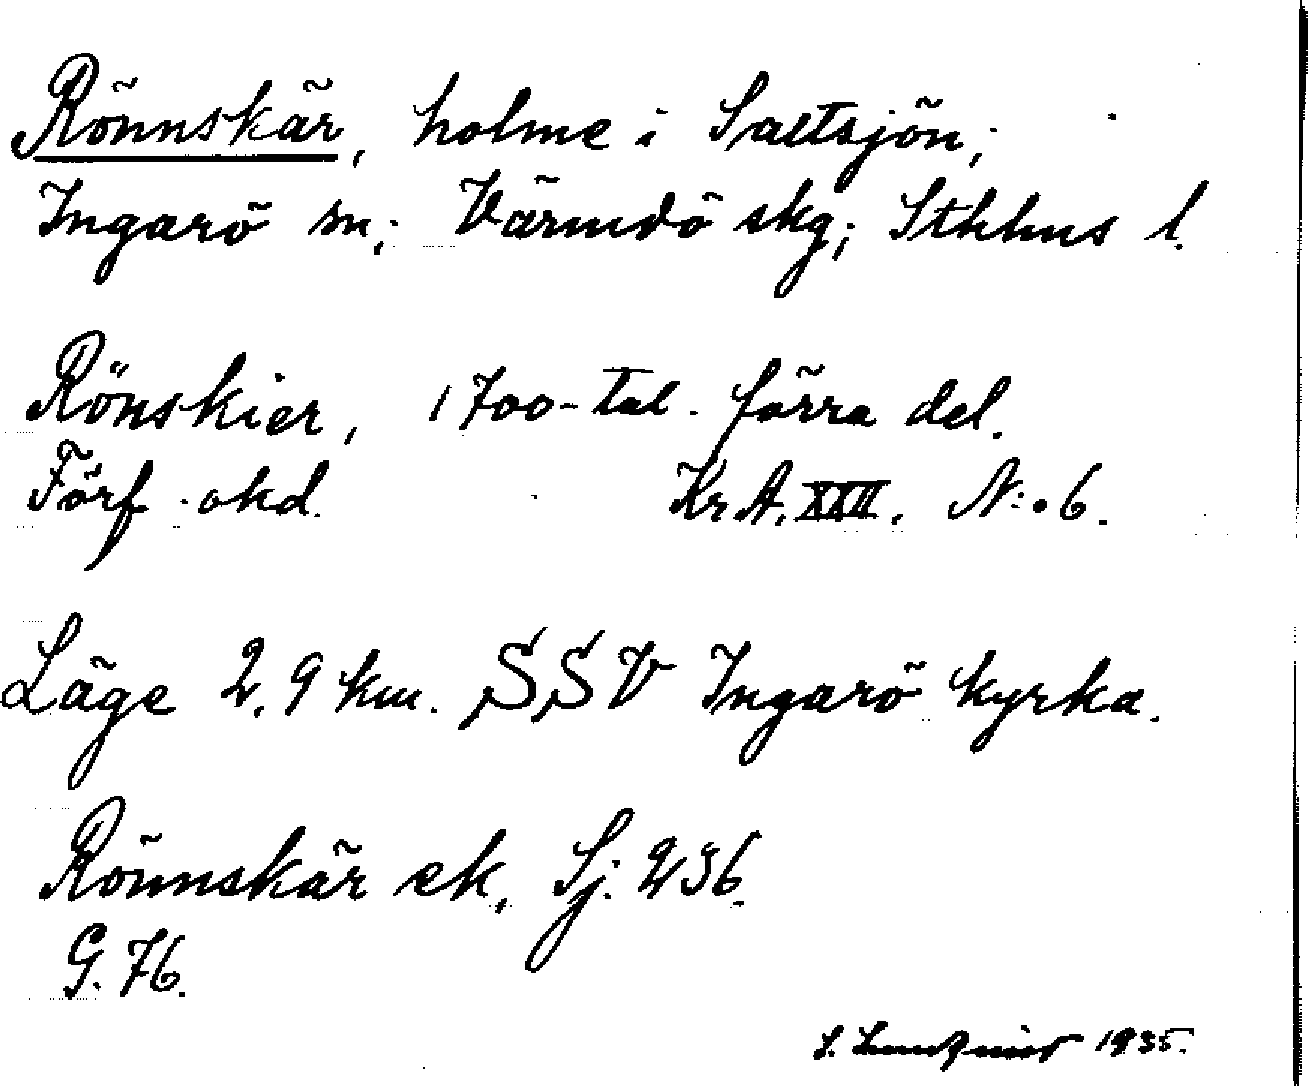 Rönnskär, holme i Saltsjön;
Ingarö sn; Värmdö skg; Sthlms l.
Rönskier, 1700-tal. förra del.
Förf. okd. Kr.A. XXII. N:o 6.
Läge 2,9 km. SSV Ingarö kyrka.
Rönnskär ek. Sj. 236.
G. 76.
S. Lundqvist 1935.